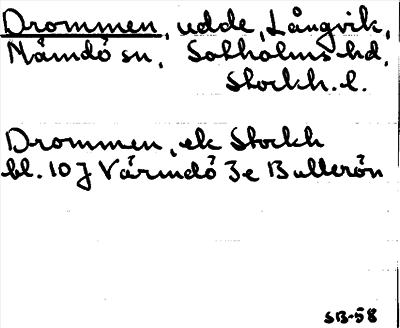 Drommen, udde, Långvik,
Nämdö sn, Sotholms hd,
Stockh. l.
Drommen, ek Stockh
bl. 10 J Värmdö 3e Bullerön
SB-58